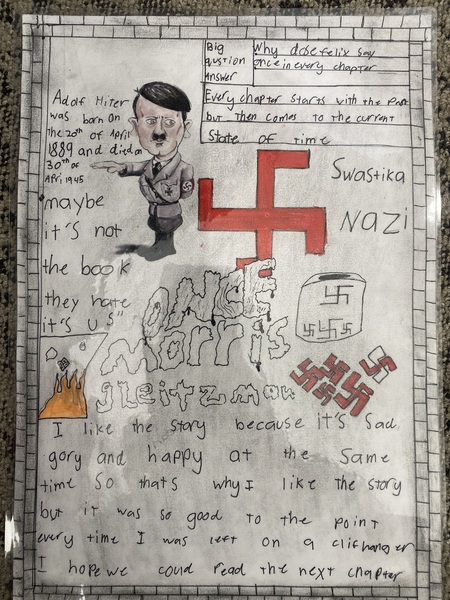 Big
qustion
Why dose felix say
once in every chapter
Answer
Every chapter starts with the Past
but then comes to the current
State of time
Adolf Hitler
was born on
the 20th of April
1889 and died on
30th of
April 1945
Swastika
Nazi
maybe
it's not
the book
they hate
it's us"
ONCE
Morris
gleitzman
I like the story because it's sad,
gory and happy at the same
time so thats why I like the story
but it was so good to the point
every time I was left on a clifhanger
I hope we could read the next chapter